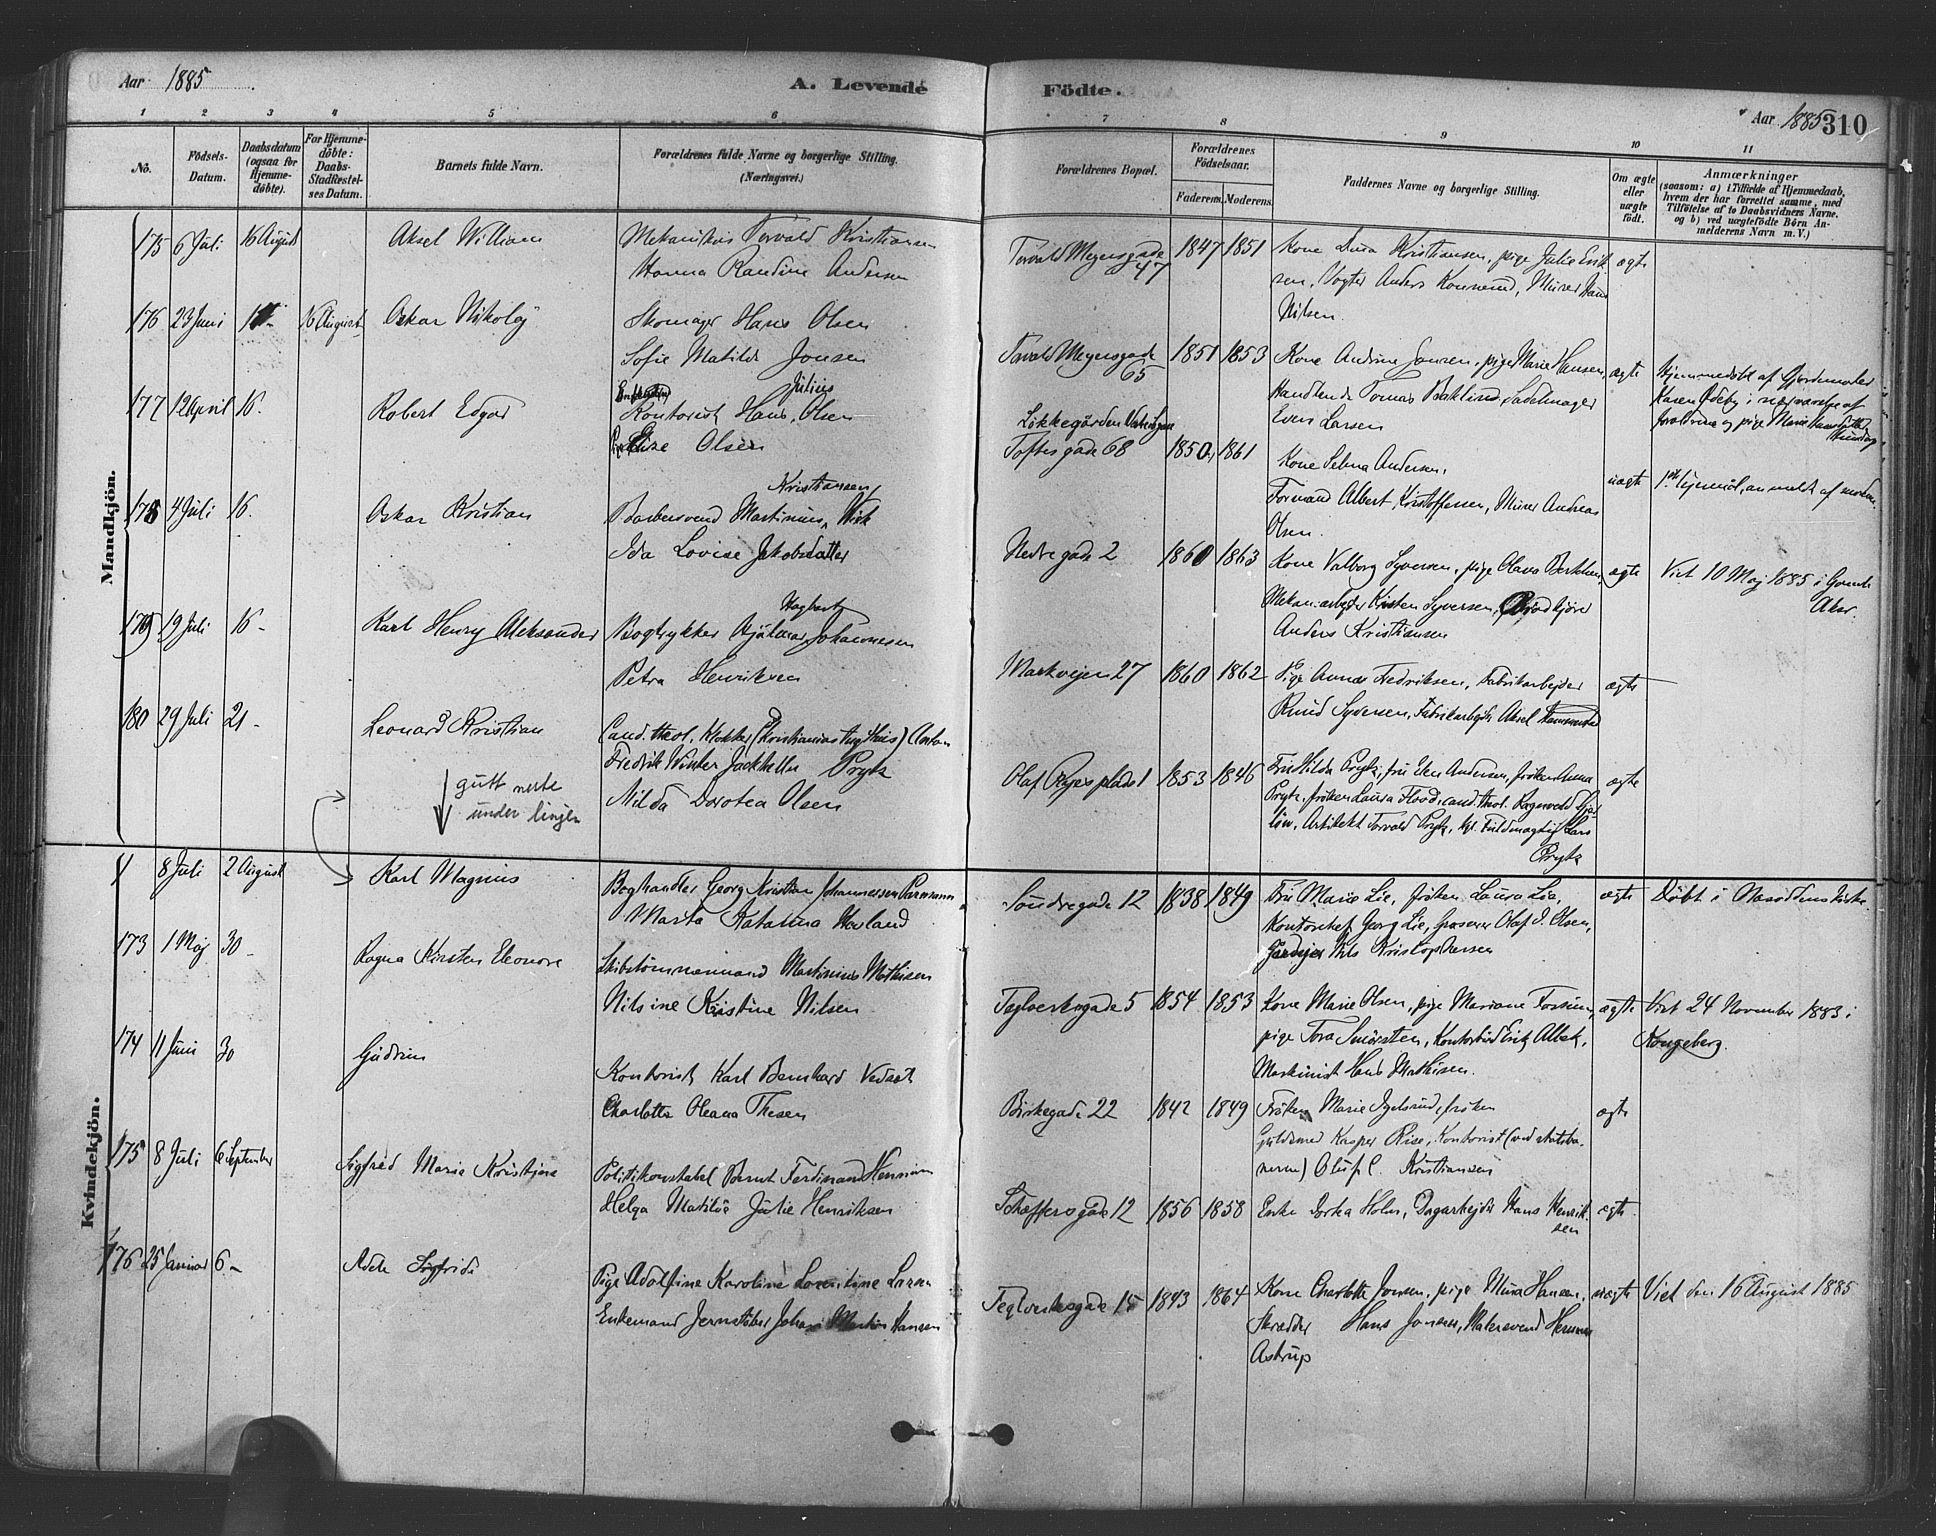 Aar 1885
A. Levende
Födte.
Aar 1885 310
1 2 3 4 5 6 7 8 9 10 11
No.
Födsels-Datum.
Daabsdatum (ogsaa for Hjemmedöbte).
For Hjemmedöbte: Daabs-Stadfestelses Datum.
Barnets fulde Navn.
Forældrenes fulde Navne og borgerlige Stilling. (Næringsvei.)
Forældrenes Bopæl.
Forældrenes Födselsaar.
Faderens. Moderens.
Faddernes Navne og borgerlige Stilling.
Om ægte eller uægte födt.
Anmærkninger
(saasom: a) i Tilfælde af Hjemmedaab,
hvem der har forrettet samme, med
Tilföielse af to Daabsvidners Navne.
og b) ved uægtefödte Börn An-
melderens Navn m. V.)
Mandkjön.
175 6 Juli 16 August Aksel William
Mekanikus Torvald Kristiansen
Hanna Randine Andersen
Torvald Meyersgade 47 1847 1851
Kone Kristiansen, pige Julie Erik-
sen, Vogter Anders, Murer Hans
Nilsen
ægte
176 23 Juni 16 August Oskar Nikolaj
Skomager Hans Olsen
Sofie Matilde Jonsen
Torvald Meyersgade 65 1851 1853
Kone Andrine Jonsen, pige Marie Hansen,
Handlende Tomas, Sadelmager
Even Larsen
ægte
Hjemmedöbt af Gjordemoder
Karen Ödeby i nærværelse af
forældrene og pige Marie
177 12 April 16. Robert Edgar
Kontorist Hans Julius Olsen
Elise Olsen
Lökkegården
Toftesgade 68 1850 1861
Kone Selma Andersen,
Formand Albert Kristoffersen, Murer Andreas
Olsen.
uægte
anmeldt af moderen
178 4 Juli 16. Oskar Kristian
Kristiansen
Barbersvend Martinius Wiik
Ida Lovise Jakobsdatter
Nedregade 2 1860 1863
Kone Valborg Syversen, pige Olava
Mekan. arbejder Kristen Syversen, Brödkjörer
Anders Kristiansen
ægte
Viet 10 Maj 1885 i
Aker.
179 19 Juli 16 - Karl Henry Aleksander
Hagbart
Bogtrykker Hjalmar Johannesen
Petra Henriksen
Markvejen 27 1860 1862
Pige Anna Fredriksen, Fabrikarbejder
Knud Syversen, Fabrikarbejder Aksel
ægte
180 29 Juli 21 - Leonard Kristian
Cand. theol. Klokker (Kristianias Tugthus) (Anton
Fredrik Winter Jackhelln Prytz
Milda Dorotea Olsen
Olaf Ryes plads 1 1853 1846
Fru Hilda Prytz, fru Andersen, fröken Anna
Prytz, fröken Laura Flood, cand. theol. Ragnvald
Arkitekt Torvald Prytz, kgl. Fuldmægtig Lars
Prytz
ægte
gutt neste
under linjen
8 Juli 2 August Karl Magnus
Boghandler Georg Kristian Johannessen Parmann
Marta Katarina Hovland
Söndregade 12 1838 1849
Fru Marie Lie, fröken Laura Lie,
Kontorchef Georg Lie, Grosserer Olaf J. Olsen,
Gårdejer Nils Kristophersen
ægte
Döbt i Nesoddens kirke.
Kvindekjön.
173 1 Maj 30 - Ragna Kirsten Eleonore
Skibstömmermand Martinius Mathisen
Nilsine Kristine Nilsen
Teglverksgade 5 1854 1853
Kone Marie Olsen, pige Mariane
pige Tora, Kontorbud Erik Albek,
Maskinist Hans Mathisen.
ægte
Viet 24 November 1883 i
Kongsberg.
174 11 Juni 30 Gudrun
Kontorist Karl Bernhard
Charlotte Oleana Thesen
Birkegade 22 1842 1849
Fröken Marie Igelsrud, fröken
Guldsmed Kasper Riise, Kontorist (ved statsba-
nerne) Oluf C. Kristiansen
ægte
175 8 Juli 6 September Sigfred Marie Kristine
Politikonstabel Bernt Ferdinand
Helga Matilde Julie Henriksen
Schæffersgade 12 1856 1858
Enke Dorka Holm, Dagarbejder Hans Henrik-
sen
ægte.
176 25 Januar 6 - Adele Sigfride
Pige Adolfine Karoline Lovintine Larsen
Enkemand Jernstöber Johan Martin Hansen
Teglverksgade 15 1843 1864
Kone Charlotte Jonsen, pige Mina Hansen,
Skrædder Hans Jonsen, Malersvend Herman
Astrup
uægte
Viet den 16 August 1885